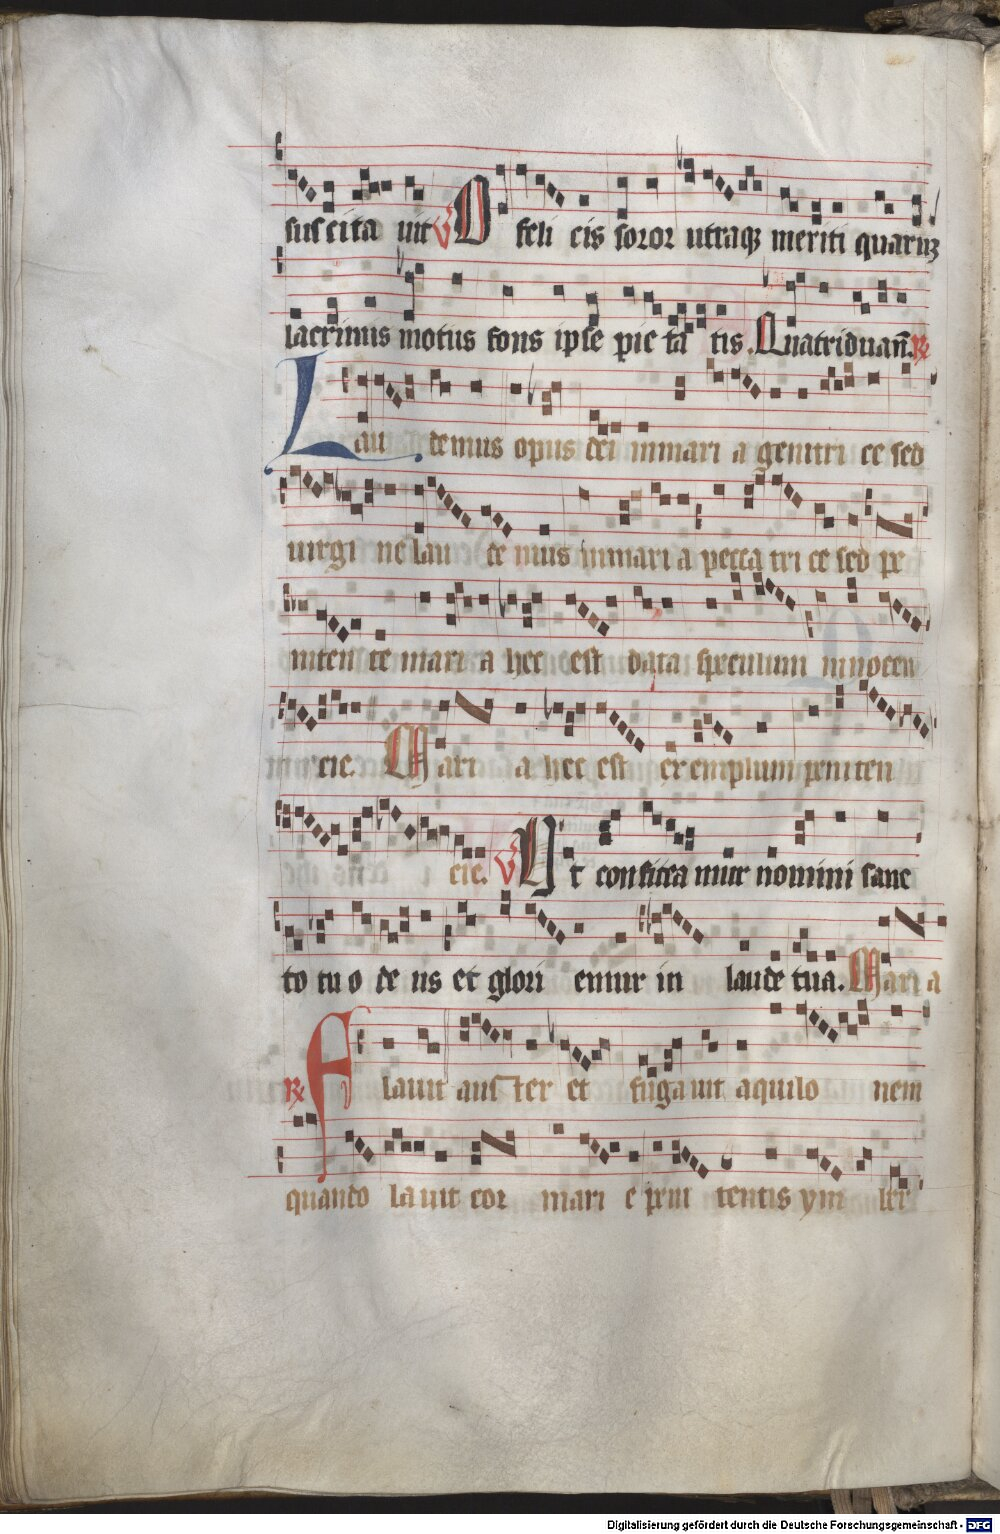 suscita uit ℣ O feli cis soror utraqꝫ meriti quarūꝫ
lacrimis motus fons ipse pie ta tis. Quatriduan̄. ℟
Lau demus opus dei in mari a genitri ce sed
uirgi ne lau de mus in mari a pecca tri ce sed pe
niten te mari a hec est data speculum innocen
cie. Mari a hec est exemplum peniten
cie. ℣ Ut confitea mur nomini sanc
to tu o de us et glori emur in laude tua. Mari a
℟ Flauit aus ter et fuga uit aquilo nem
quando la uit cor mari e peni tentis ym ber
Digitalisierung gefördert durch die Deutsche Forschungsgemeinschaft - DFG